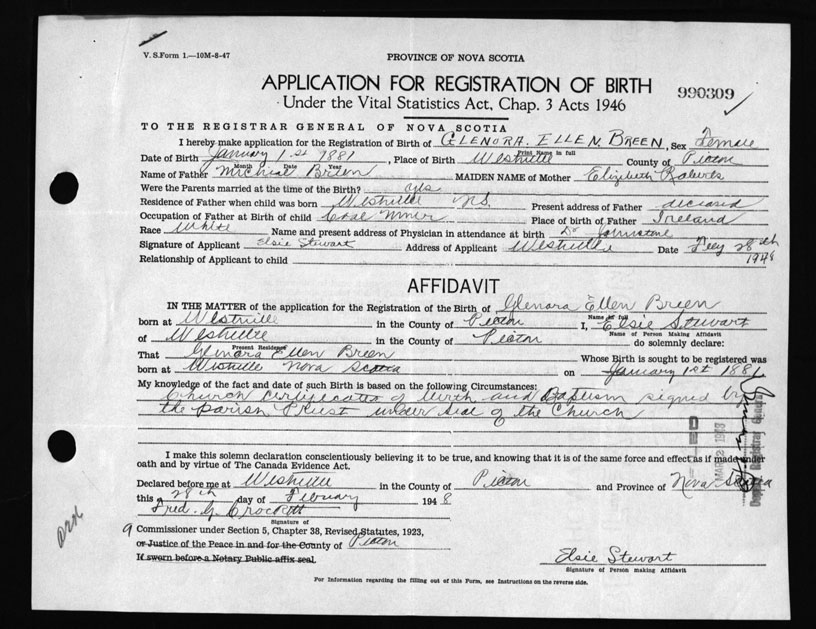 V. S. Form 1.—10M-8-47
PROVINCE OF NOVA SCOTIA
APPLICATION FOR REGISTRATION OF BIRTH
990309
Under the Vital Statistics Act, Chap. 3 Acts 1946
TO THE REGISTRAR GENERAL OF NOVA SCOTIA
I hereby make application for the Registration of Birth of GLENORA. ELLEN. BREEN, Sex Female
Print Name in full
Date of Birth January 1st 1881, Place of Birth Westville County of Pictou
Month Date Year
Name of Father Michial Brien MAIDEN NAME of Mother Elizabeth
Were the Parents married at the time of the Birth? yes
Residence of Father when child was born Westville N.S. Present address of Father deceased
Occupation of Father at Birth of child Coal Miner Place of Birth of Father Ireland
Race White Name and present address of Physician in attendance at birth Dr Johnstone
Signature of Applicant Elsie Stewart Address of Applicant Westville Date 28th
1948
Relationship of Applicant to child
AFFIDAVIT
IN THE MATTER of the application for the Registration of the Birth of Glenora Ellen Breen
Name in full
born at Westville in the County of Pictou I, Elsie Stewart
Name of Person Making Affidavit
of Westville in the County of Pictou do solemnly declare:
Present Residence
That Glenora Ellen Breen Whose Birth is sought to be registered was
born at Westville Nova Scotia on January 1st 1881
My knowledge of the fact and date of such Birth is based on the following Circumstances:
Church certificates of birth and Baptism signed by
the Parish Priest under seal of the Church
I make this solemn declaration conscientiously believing it to be true, and knowing that it is of the same force and effect as if made under
oath and by virtue of The Canada Evidence Act.
Declared before me at Westville in the County of Pictou and Province of Nova Scotia
this 28th day of February 1948
Fred. G. Crockett
Signature of
a Commissioner under Section 5, Chapter 38, Revised Statutes, 1923,
or Justice of the Peace in and for the County of Pictou
If sworn before a Notary Public affix seal.
Elsie Stewart
Signature of Person making Affidavit
For Information regarding the filling out of this Form, see Instructions on the reverse side.
Deputy Registrar General